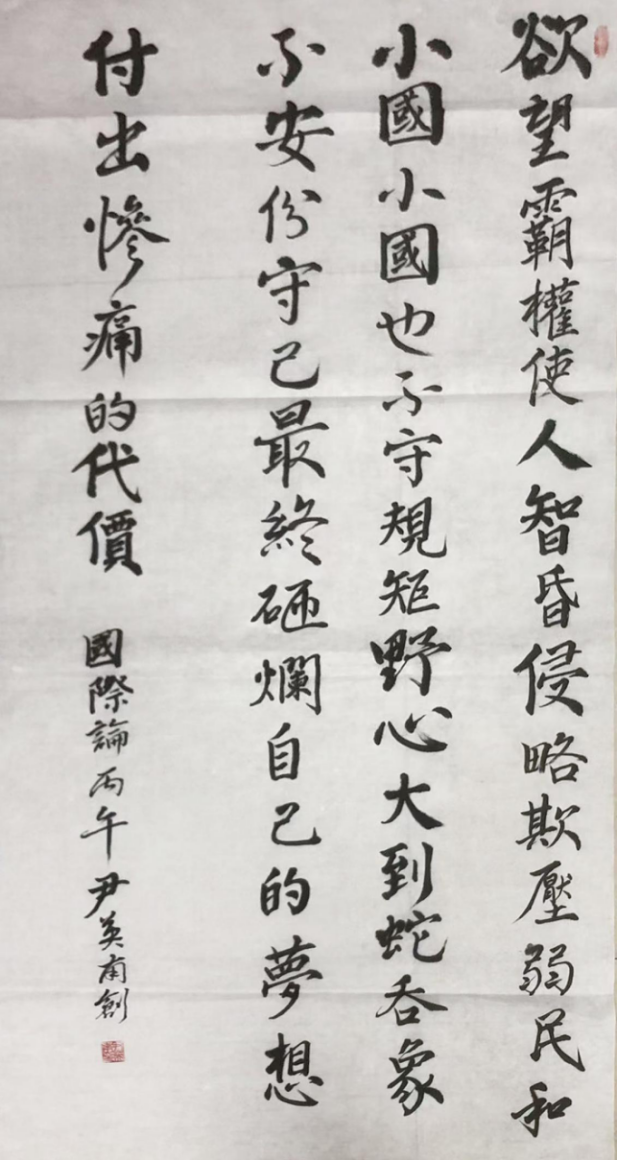 欲望霸權使人智昏侵略欺壓弱民和
小國小國也不守規矩野心大到蛇吞象
不安份守己最終砸爛自己的夢想
付出慘痛的代價
國際論丙午尹英南創